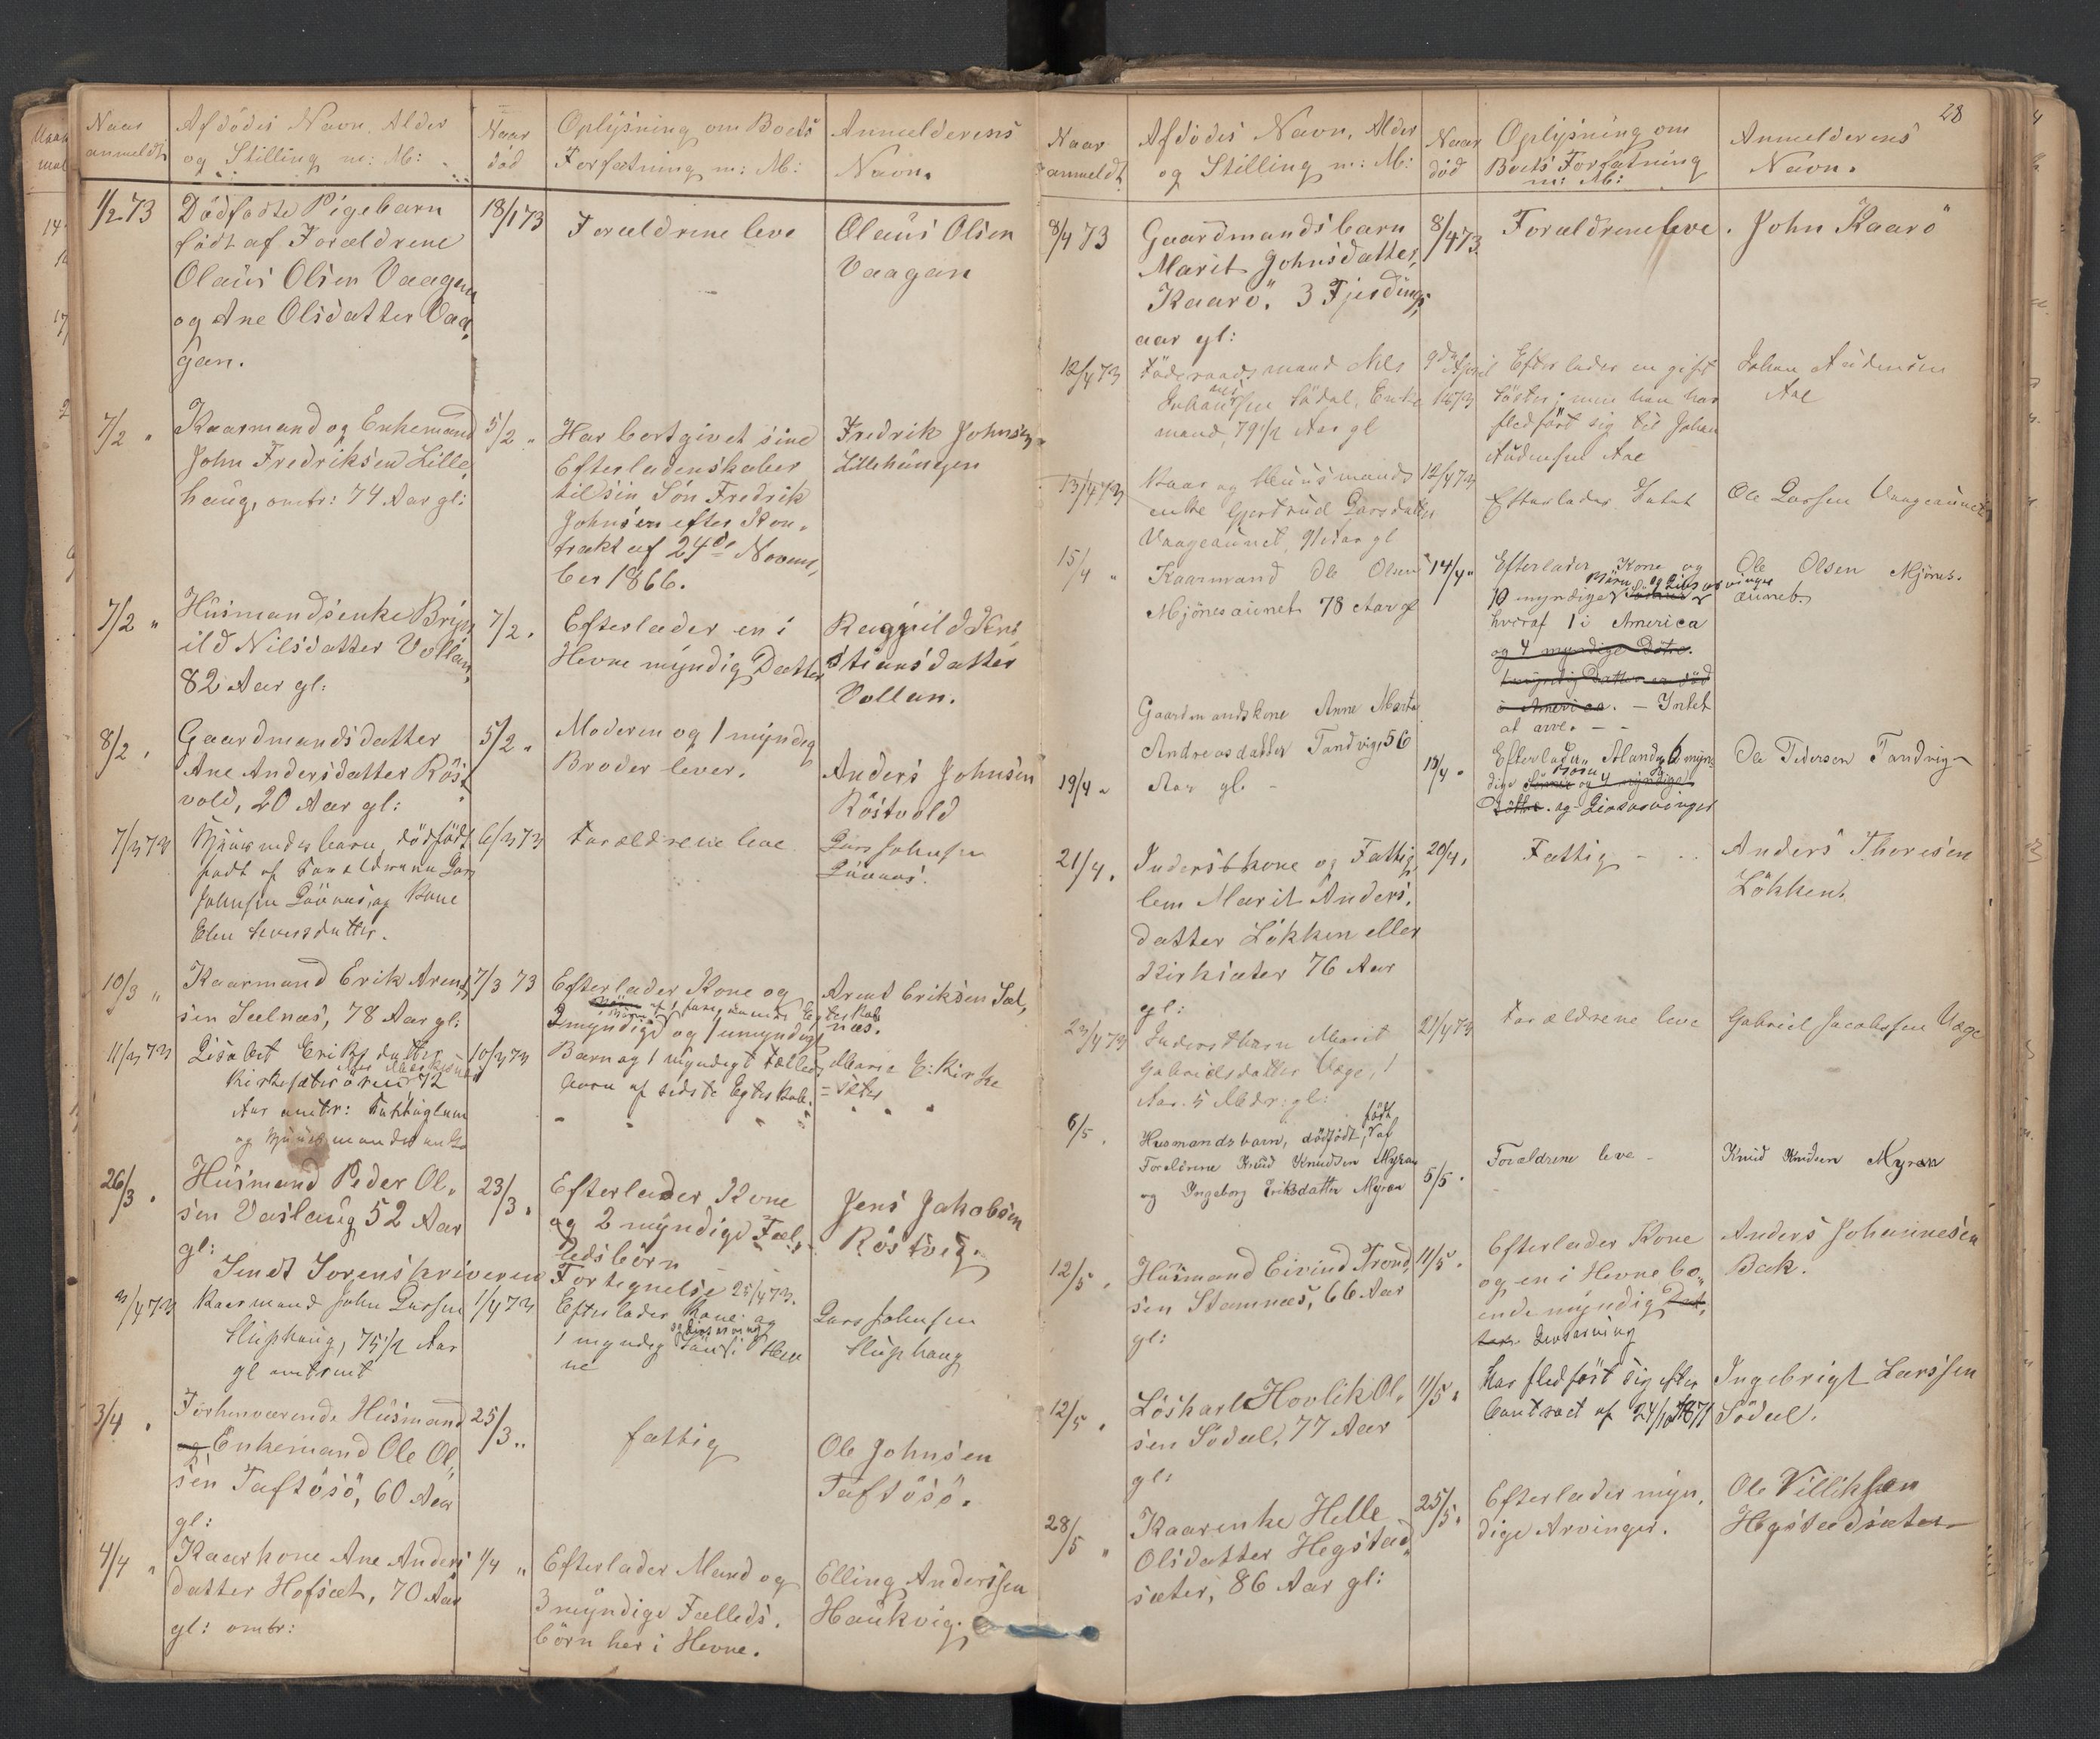 Naar anmeldt
Afdödes Navn, Alder og Stilling m: M:
Naar död
Oplysning om Boets Forfatning m: M:
Anmelderens Navn.
1/2 73
Dödfödte Pigebarn
födt af Forældrene
Olaus Olsen Vaagan
og Ane Olsdatter Vaa,
gan.
18/1 73
Forældrene leve
Olaus Olsen
Vaagan
7/2 "
Kaarmand og Enkemand
John Fredriksen Lille,
haug, omtr: 74 Aar gl:
5/2 "
Har bortgivet sine
Efterladenskaber
til sin Søn Fredrik
Johnsen efter Kon,
trakt af 24de Novem,
ber 1866.
Fredrik Johnsen
Lillehaugen
7/2 "
Husmandsenke
ild Nilsdatter Vollan,
82 Aar gl:
7/2 "
Efterlader en i
Hevne myndig Datter
Ragnild Kri
stiansdatter
Vollan.
8/2 "
Gaardmandsdatter
Ane Andersdatter Röst,
vold, 20 Aar gl:
5/2 "
Moderen og 1 myndig
Broder lever.
Anders Johnsen
Röstvold
7/3 73
Huusmandsbarn, dödfödt
födt af Forældrene Lars
Johnsen og Kone
Elen Iversdatter.
6/3 73
Forældrene leve
Lars Johnsen
10/3 "
Kaarmand Erik Arent,
sen Sælnæs, 78 Aar gl:
7/3 73
Efterlader Kone og
2 myndige og 1 umyndigt
Arent Eriksen Sæl,
næs.
11/3 73
Lisabet Eriksdatter
Kirksæterören 72
Aar omtr: Fattiglem
og Huusmandsenke
10/3 73
Barn og 1 myndigt Fælleds
barn af sidste Egteskab.
Marie E: Kirk
=sæter
26/3 "
Husmand Peder Ol,
sen Vaslaug 52 Aar
gl:
23/3 "
Efterlader Kone
og 2 myndige Fæl,
ledsbörn
Jens Jakobsen
Röstvig.
Sendt Sorenskriveren Fortegnelse 25/4 73.
3/4 73
Kaarmand John Larsen
Sliphaug, 75 1/2 Aar
gl omtrent
1/4 73
Efterlader Kone og
1 myndig Sön i Hev
ne
og Livsarving
Lars Johnsen
Sliphaug
3/4 "
Forhenværende Husmand
og Enkemand Ole Ol,
sen Taftösö, 60 Aar
gl:
25/3 "
fattig
Ole Johnsen
Taftösö.
4/4 "
Kaarkone Ane Anders
datter Hofsæt, 70 Aar
gl: omtr:
1/4 "
Efterlader Mand og
3 myndige Fælleds,
börn her i Hevne.
Elling Anderssen
Haukvig.
28
Naar anmeldt
Afdödes Navn, Alder og Stilling m: M:
Naar död
Oplysning om Boets Forfatning m: M:
Anmelderens Navn.
8/4 73
Gaardmandsbarn
Marit Johnsdatter
Kaarö. 3 Fjerding,
aar gl:
8/4 73.
Forældrene leve.
John Kaarö
12/4 73
Föderaadsmand Nils
Johansen Södal, Enke
mand, 79 1/2 Aar gl
9de April 1873
Efterlader en gift
Söster; men han har
fledfört sig til Johan
Audensen Aae
Johan Audensen
Aae
13/4 73
Kaar og Huusmands
enke Gjertrud Larsdatter
Vaageaunet, 91 Aar gl
12/4 73
Efterlader Intet
Ole Larsen Vaageaunet
15/4 "
Kaarmand Ole Olsen
Mjönesaunet 78 Aar gl
14/4 "
Efterlader Kone og
10 myndige Börn og Livsarvinger
hvoraf 1 i America
og 4 myndige Døtre.
1 myndig Datter er död
i America. - Intet
at arve. - -
Ole Olsen Mjönes,
aunet.
19/4 "
Gaardmandskone Anne Marta
Andreasdatter Tandvig, 56
Aar gl. -
18/4 "
Efterlader Mand, 6 myn,
dige Börn og 4 myndige
Döttre. og Livsarvinger
Ole Pedersen Tandvig
21/4 "
Inderstkone og Fattig,
lem Marit Anders,
datter Lökken eller
Kirksæter 76 Aar
gl:
20/4 "
Fattig - - -
Anders Thoresen
Lökken.
23/4 73
Inderstbarn Marit
Gabrielsdatter Vage, 1
Aar 5 Mdr: gl:
21/4 73
Forældrene leve
Gabriel Jacobsen Vage
6/5 "
Husmandsbarn, dödfödt, födt af
Forældrene Knud Knudsen Myran
og Ingeborg Eriksdatter Myran
5/5 "
Forældrene leve -
Knud Knudsen Myran
12/5 "
Husmand Eivind Trond,
sen Stamnæs, 66 Aar
gl:
11/5 "
Efterlader Kone
og en i Hevne bo,
ende myndig Dat,
ter Livsarving
Anders Johannesen
Bak.
12/5 "
Löskarl Hovlik Ol,
sen Södal, 77 Aar
gl:
11/5 "
Har fledfört sig efter
Contract af 24/10 1871
Ingebrigt Larssen
Södal.
28/5 "
Kaarenke Helle
Olsdatter Hegstad,
sæter, 86 Aar gl:
25/5 "
Efterlader myn,
dige Arvinger.
Ole Villiksen
Hegstadsæter